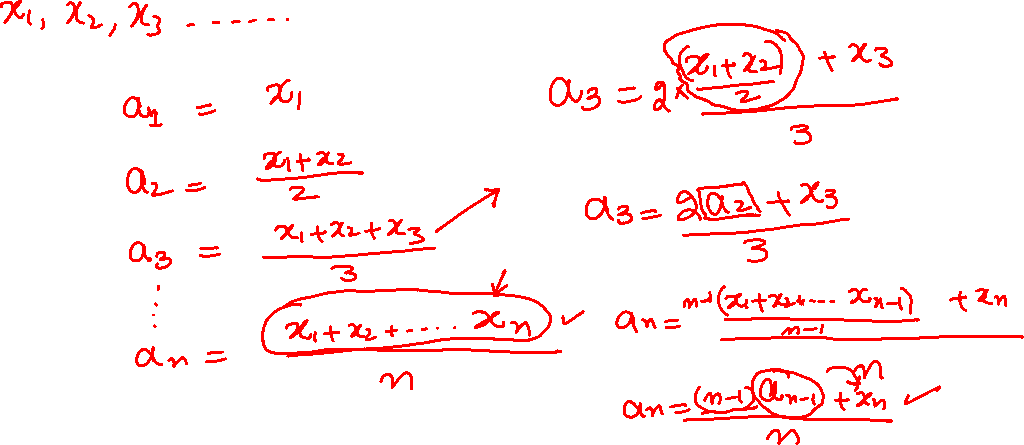 x₁, x₂, x₃ .......
a₁ = x₁
a₂ = (x₁+x₂)/2
a₃ = (x₁+x₂+x₃)/3
⋮
aₙ = (x₁+x₂+.... xₙ)/n ✓
a₃ = (2×((x₁+x₂)/2) + x₃)/3
a₃ = (2a₂ + x₃)/3
aₙ = (n-1(x₁+x₂+.... xₙ₋₁)/(n-1) + xₙ)/n
aₙ = ((n-1)aₙ₋₁ + xₙ)/n ✓